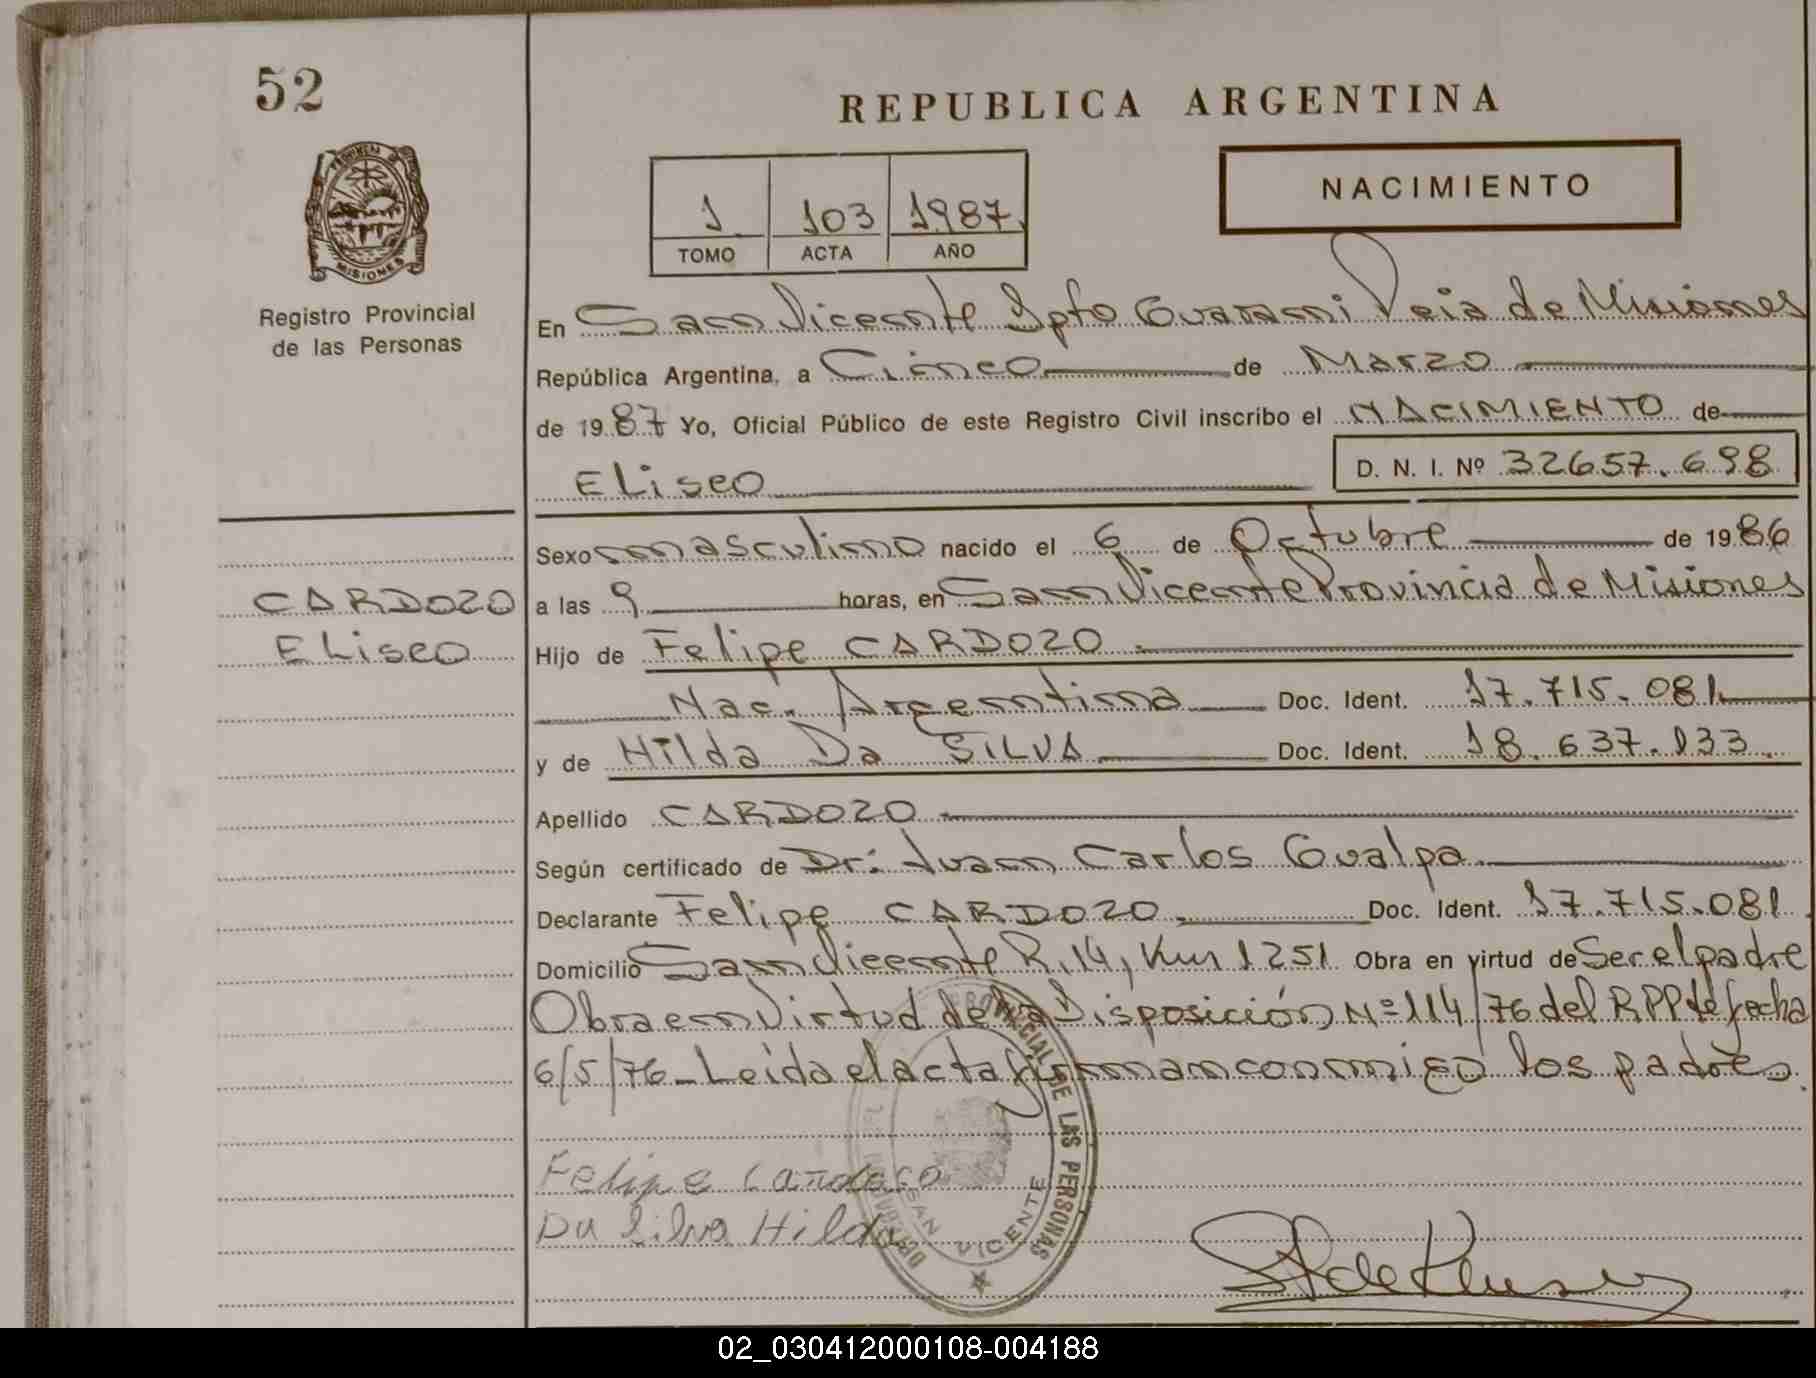 52
REPUBLICA ARGENTINA
NACIMIENTO
1 103 1987
TOMO ACTA AÑO
PROVINCIA DE
MISIONES
Registro Provincial
de las Personas
En San Vicente Dpto Guarani Pcia de Misiones
República Argentina, a Cinco de Marzo
de 1987 Yo, Oficial Público de este Registro Civil inscribo el NACIMIENTO de
ELiseo D. N. I. Nº 32657.698
Sexo masculino nacido el 6 de Octubre de 1986
CARDOZO
ELiseo
a las 9 horas, en San Vicente Provincia de Misiones
Hijo de Felipe CARDOZO
Nac. Argentina Doc. Ident. 17.715.081
y de Hilda Da SILVA Doc. Ident. 18.637.133
Apellido CARDOZO
Según certificado de Dr: Juan Carlos Gualpa
Declarante Felipe CARDOZO Doc. Ident. 17.715.081
Domicilio San Vicente R.14, Km 1251 Obra en virtud de Ser el padre
Obra en Virtud de la Disposición Nº 114/76 del RPP de fecha
6/5/76_ Leida el acta firman conmigo los padres.
Felipe Cardozo
Da Silva Hilda
PROVINCIAL DE LAS PERSONAS
SAN VICENTE
02_030412000108-004188